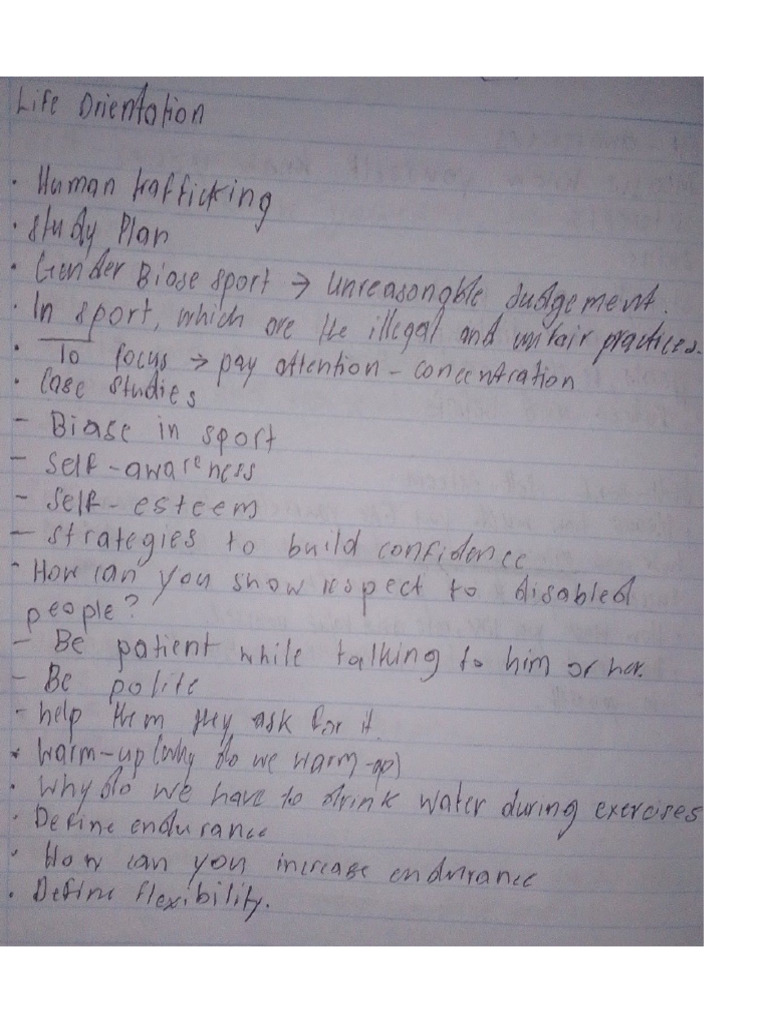 Life Orientation
• Human trafficking
• Study Plan
• Gender Biase sport → unreasonable Judgement.
• In sport, which are the illegal and unfair practices.
• To focus → pay attention - concentration
• Case Studies
- Biase in sport
- Self-awareness
- Self-esteem
- Strategies to build confidence
- How can you show respect to disabled
people?
- Be patient while talking to him or her.
- Be polite
- help them they ask for it.
• Warm-up (why do we warm-up)
• Why do we have to drink water during exercises
• Define endurance
• How can you increase endurance
• Define flexibility.